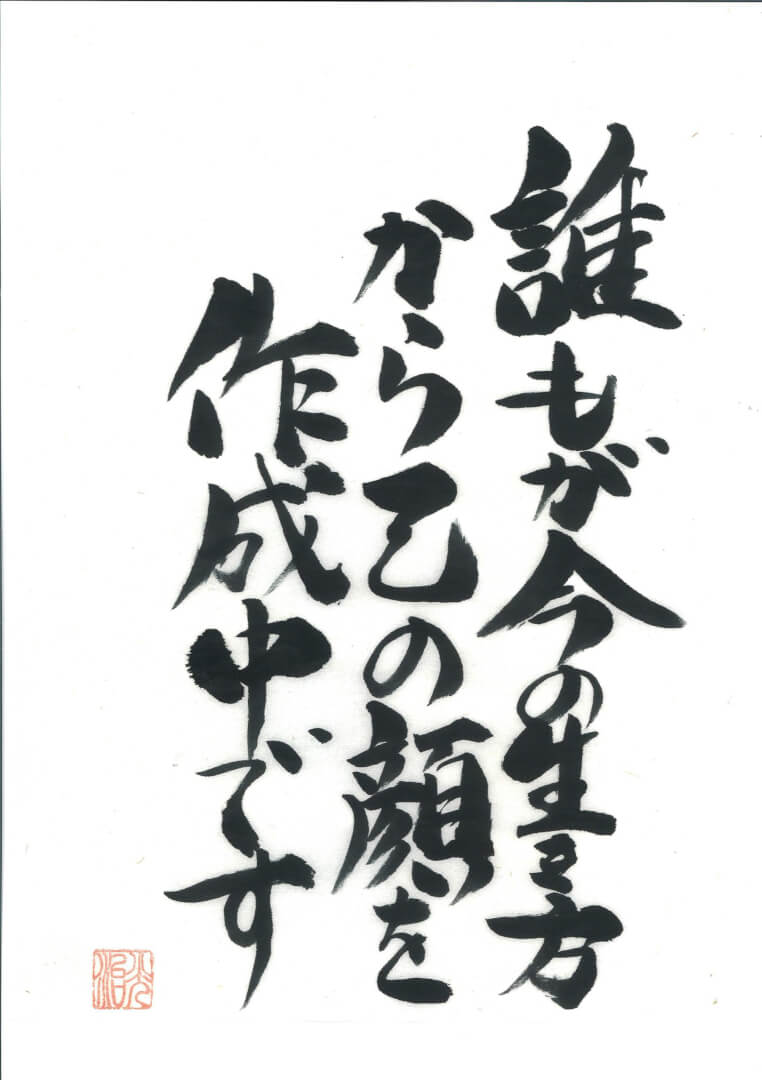 誰もが今の生き方
から己の顔を
作成中です